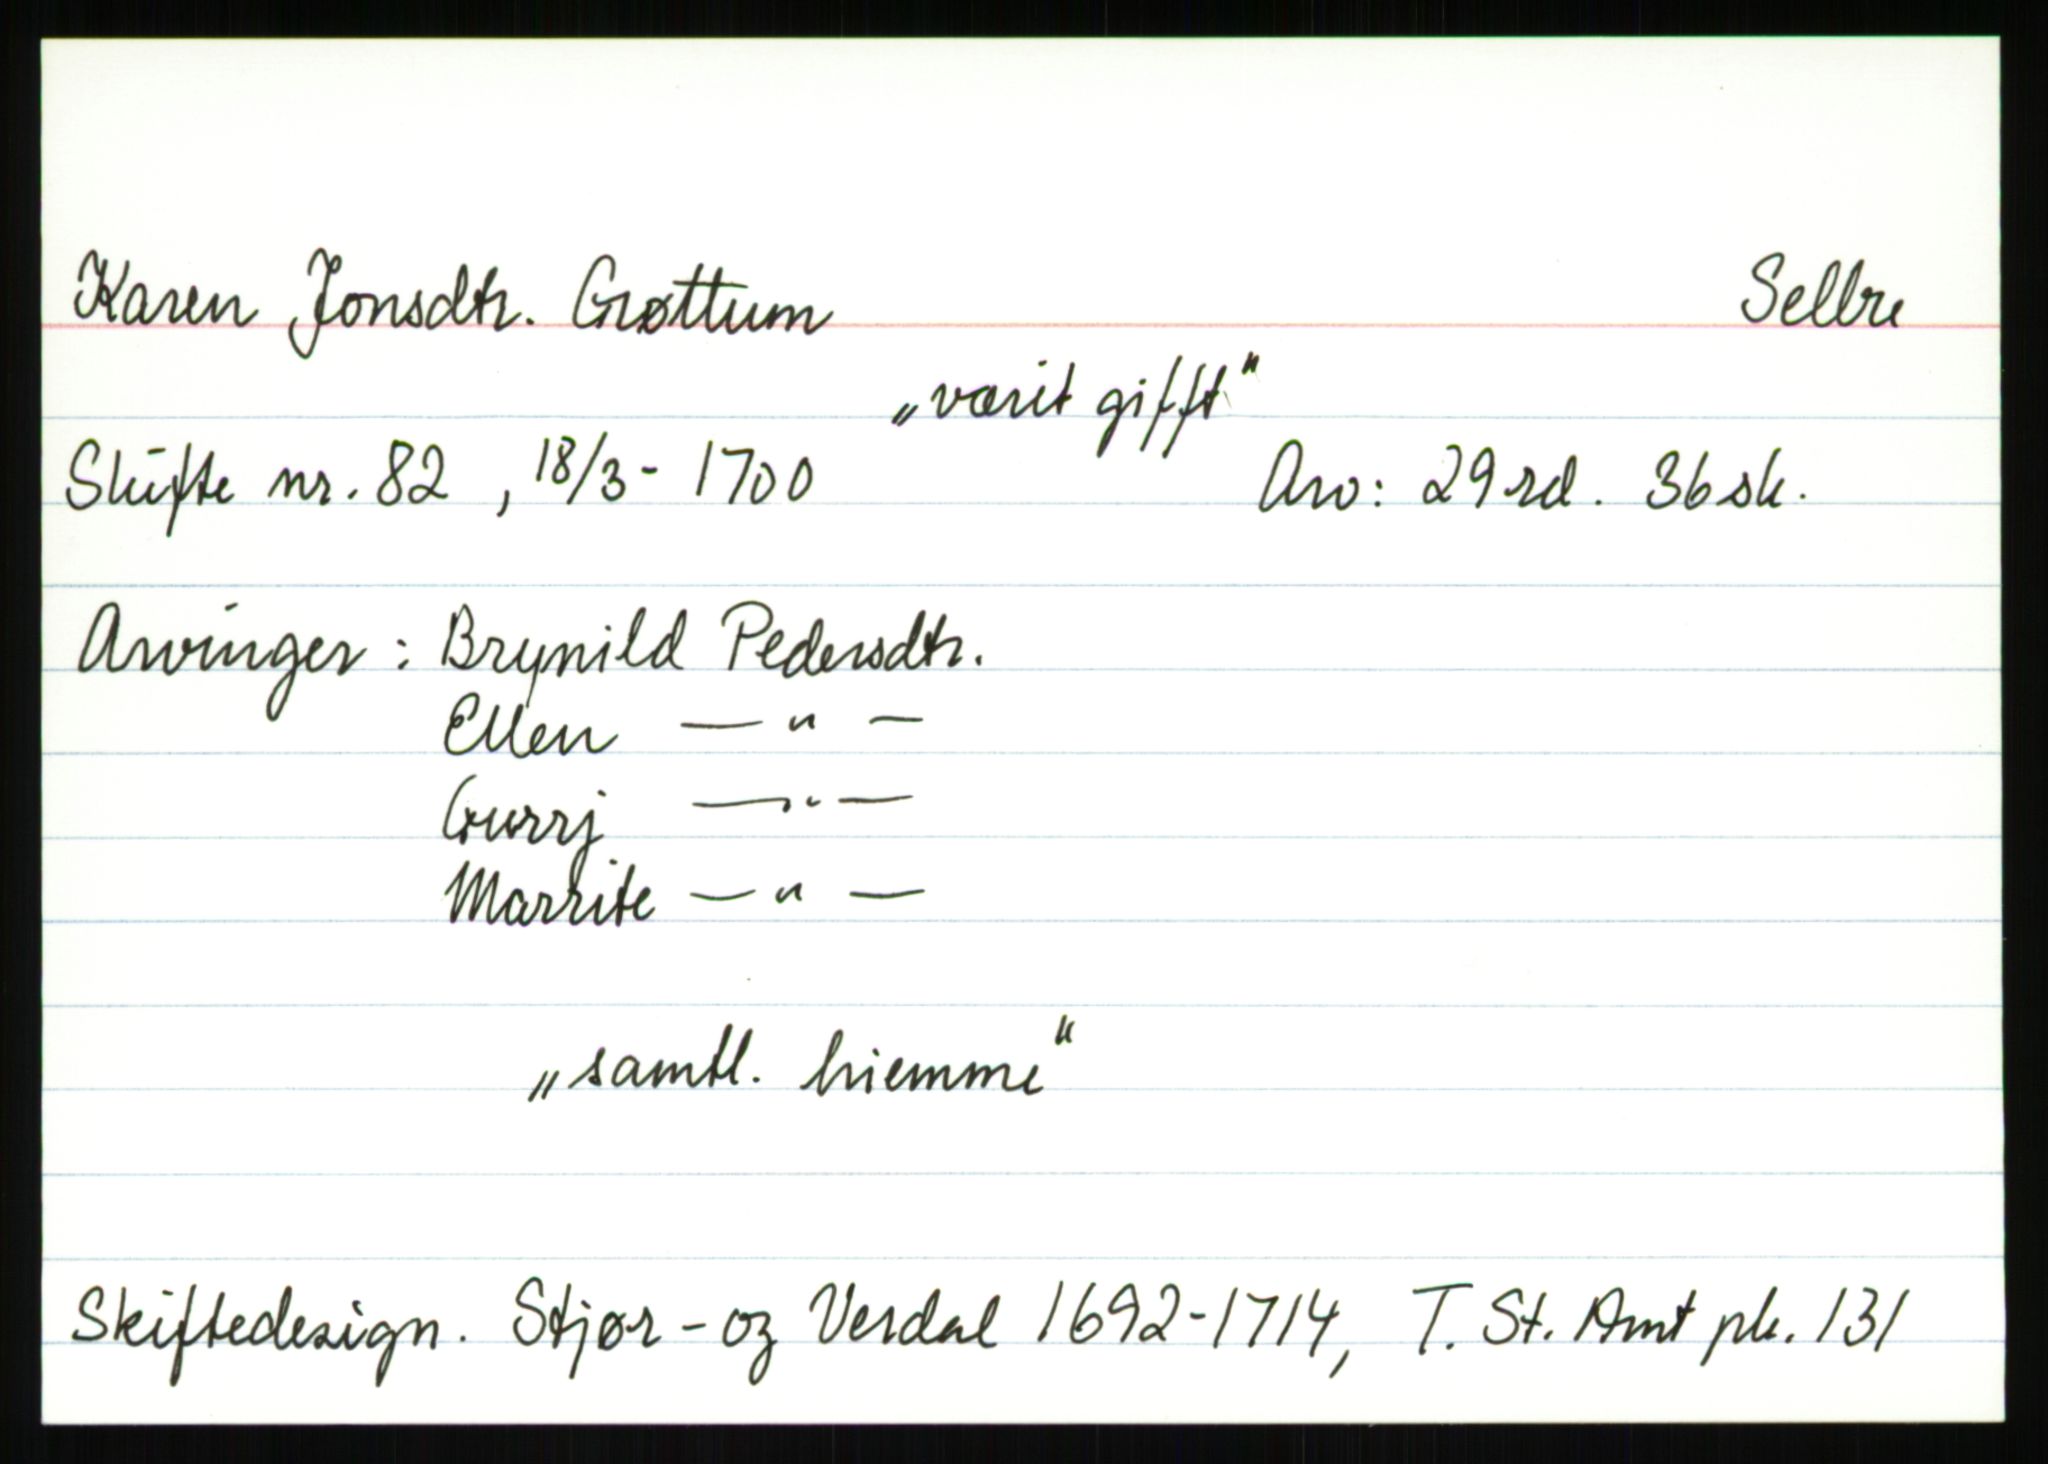 Karen Jonsdtr. Grøttum Selbu
„varit gifft"
Skifte nr. 82, 18/3- 1700 Arv: 29 rd. 36 sk.
Arvinger: Brynild Pedersdtr.
Ellen — " —
Gurrj — " —
Marrite — " —
„samtl. hiemme"
Skiftedesign. Stjør- og Verdal 1692-1714, T. St. Amt pk. 131